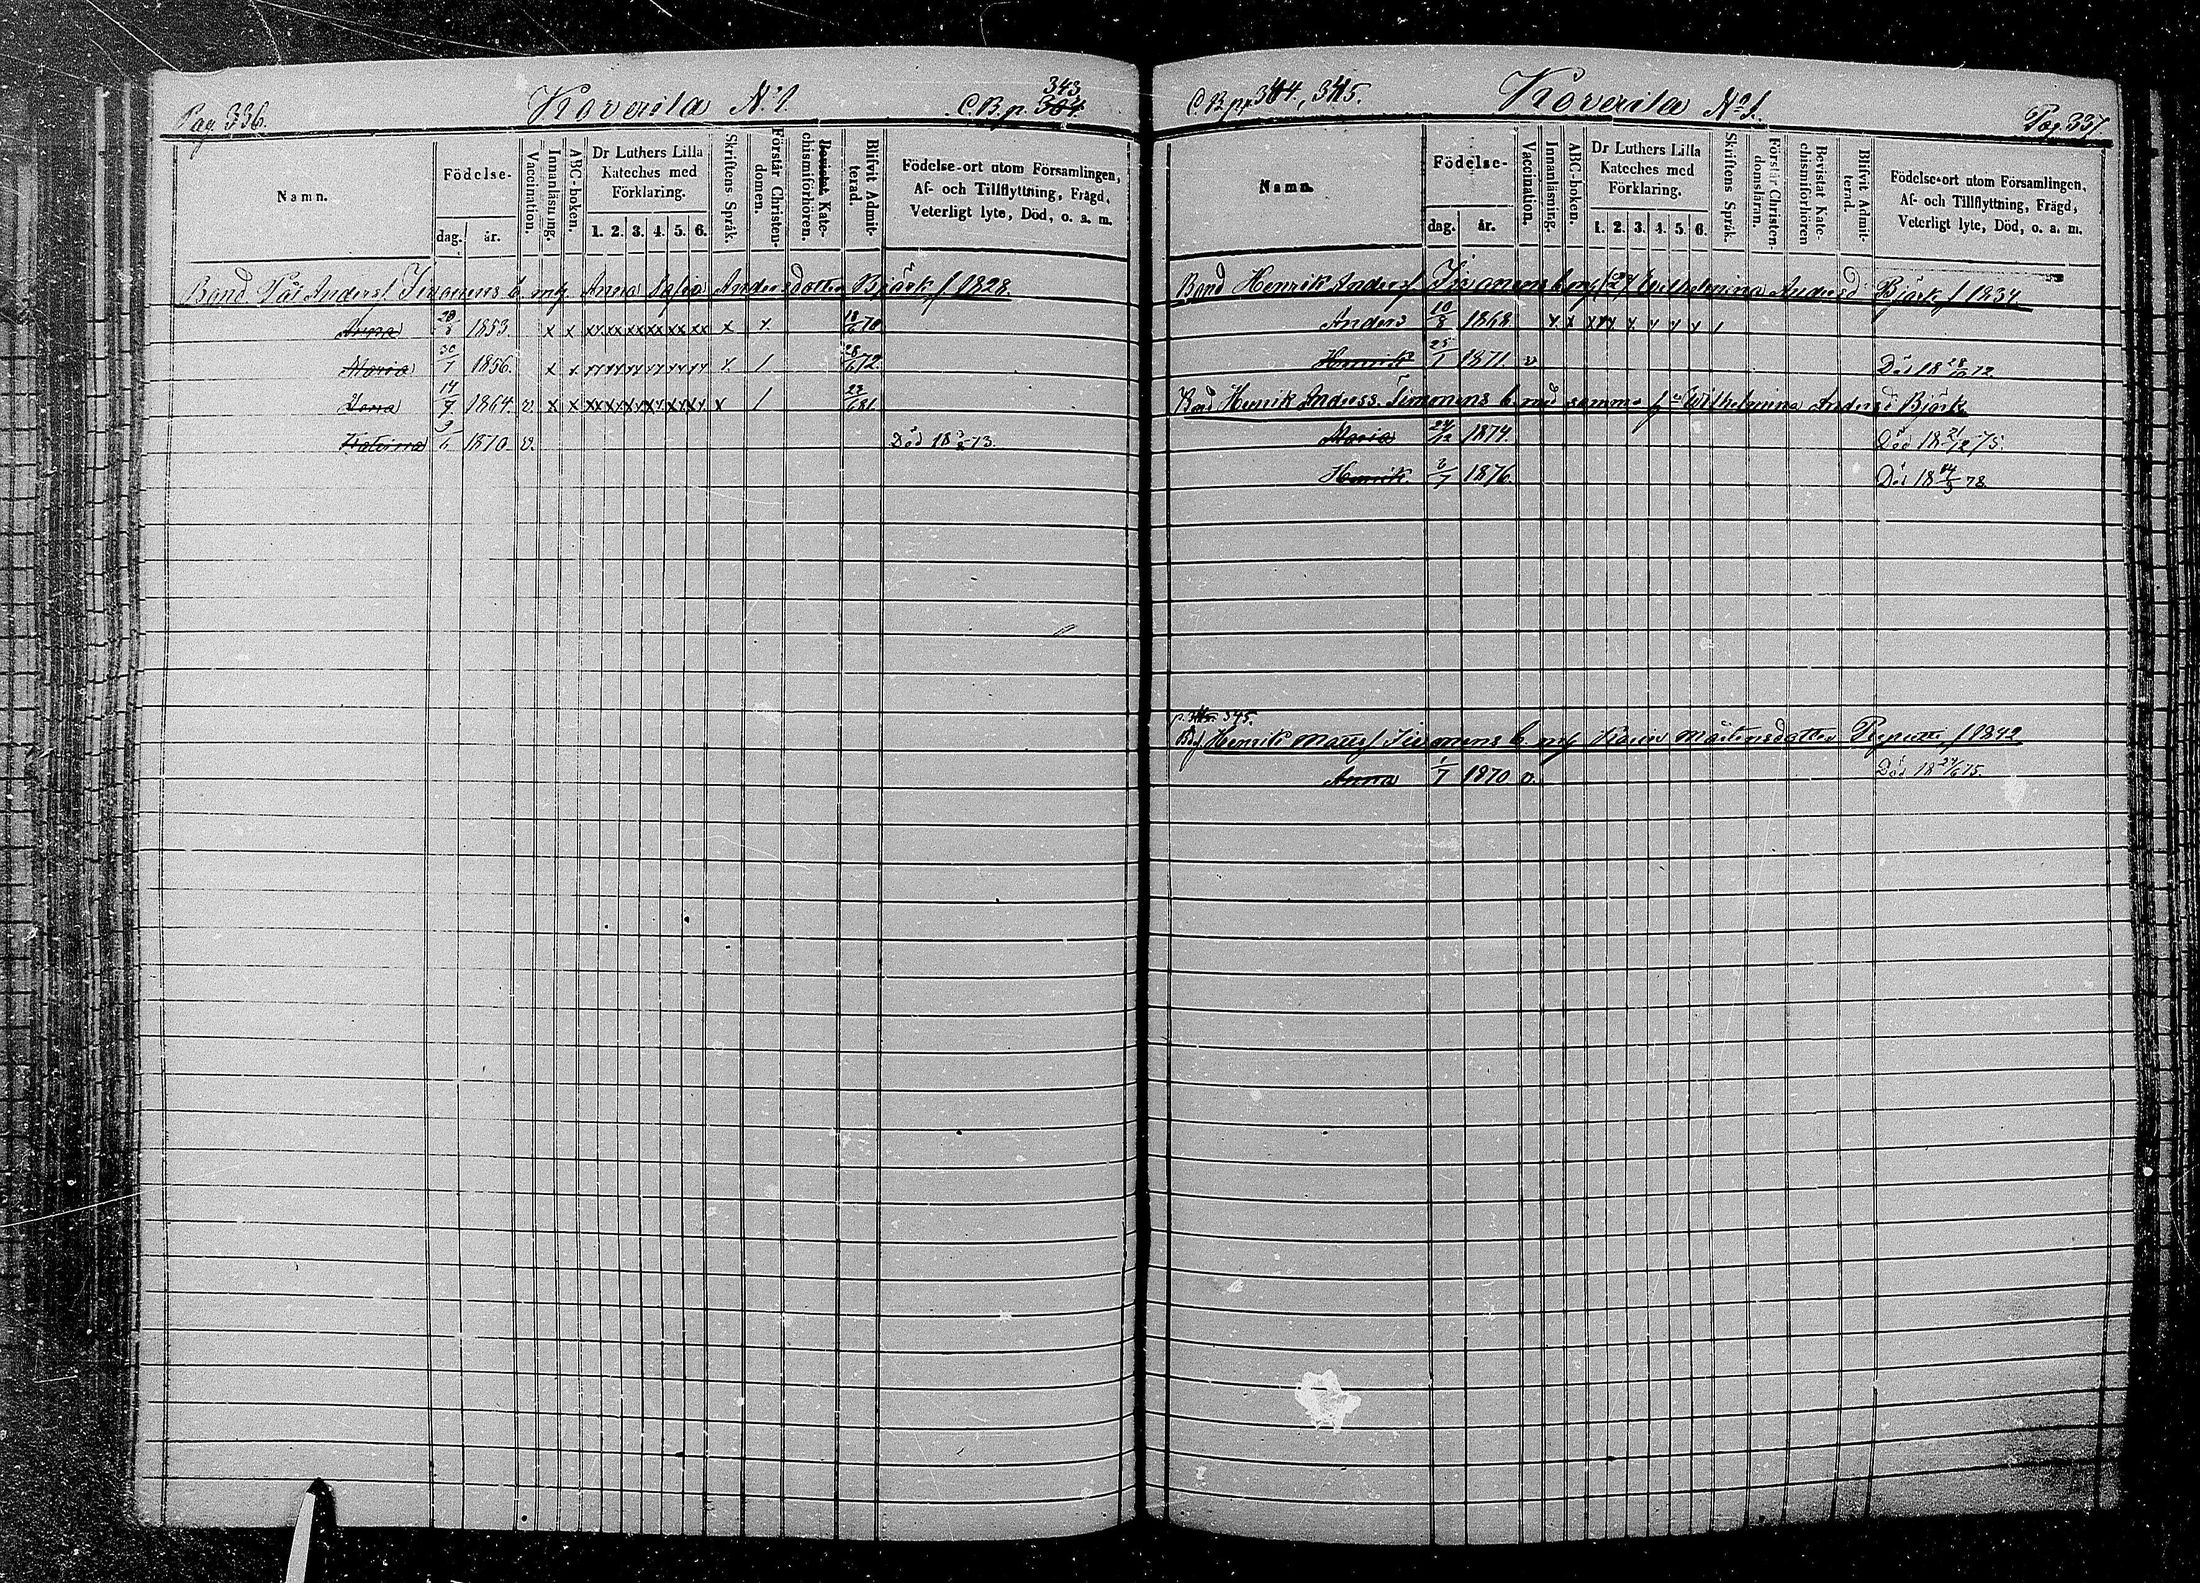 Pag. 336.
Koverila N:o 1.
343
C.B. p. 304.
Namn.
Födelse-
dag. år.
Vaccination.
Innanläsning.
ABC-boken.
Dr Luthers Lilla
Kateches med
Förklaring.
1. 2. 3. 4. 5. 6.
Skriftens Språk.
Förstår Christen-
domen.
Bevistat Kate-
chismiförhören.
Blifvit Admit-
terad.
Födelse-ort utom Församlingen,
Af- och Tillflyttning, Frägd,
Veterligt lyte, Död, o. a. m.
Bond Anders b. m. Anna Andersdotter Björk f 1828
Anna 1853. x x xx xx xx xx xx xx x 70
Maria 30/7 1856. x x 72
1864. v. x x x 1 81
Katarina 1870. v. Död 73.
C.B. p. 345.
Koverila No 1.
Pag. 337.
Namn.
Födelse-
dag. år.
Vaccination.
Innanläsning.
ABC-boken.
Dr Luthers Lilla
Kateches med
Förklaring.
1. 2. 3. 4. 5. 6.
Skriftens Språk.
Förstår Christen
domsläran.
Bevistat Kate-
chismiförhören
Blifvit Admit-
terad.
Födelse-ort utom Församlingen,
Af- och Tillflyttning, Frägd,
Veterligt lyte, Död, o. a. m.
Bond Henrik Anders Wilhelmina Andersd Björk f 1834
Anders 10/8 1868
Henrik 25/1 1871. v Död 72
Bond Henrik Anderss. Simonens b. med samma Wilhelmina Andersd Björk
Maria 24/12 1874. Död 75.
Henrik 2/7 1876. Död 78
p. 345.
Henrik Simonens b. m Karin Mårtensdotter f 1842
Anna 1/7 1870 v. Död 75.